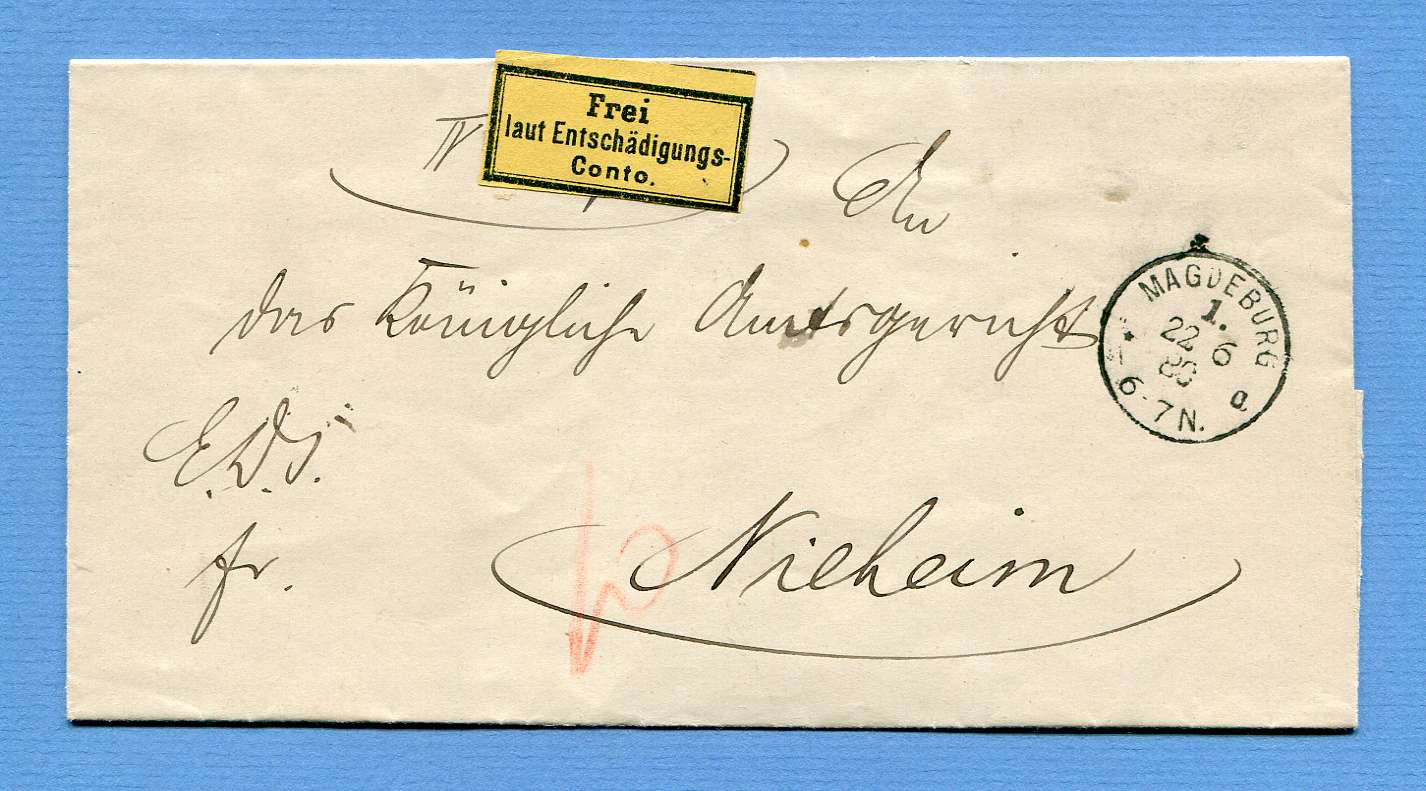 Frei
laut Entschädigungs-
Conto.
An
das Königliche Amtsgericht
MAGDEBURG
1.
22 6
a
6-7N.
E.D.S.
fr.
Nieheim